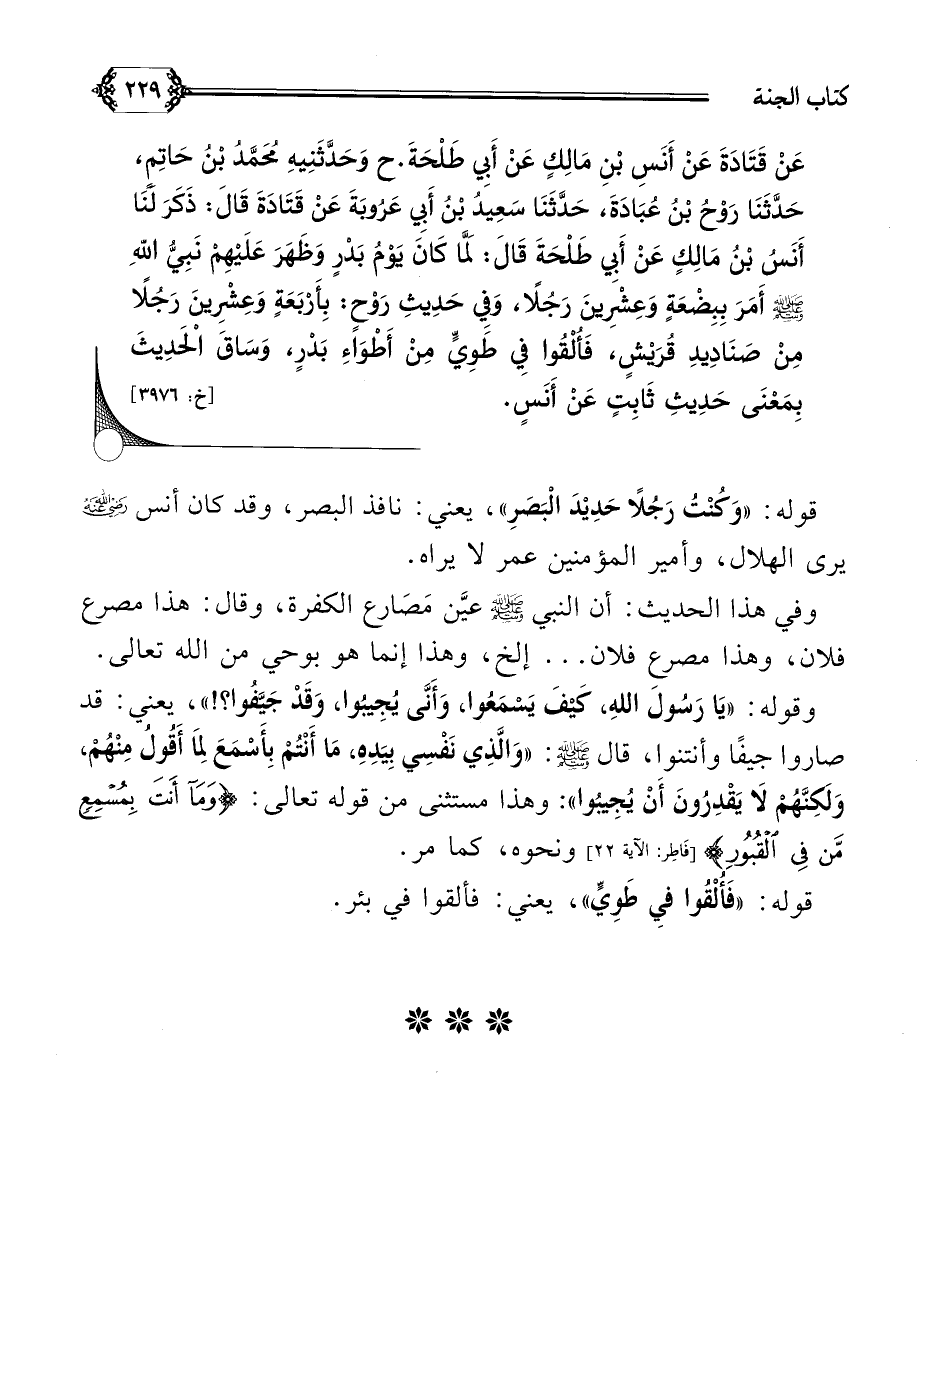 كتاب الجنة ٢٢٩
عَنْ قَتَادَةَ عَنْ أَنَسِ بْنِ مَالِكٍ عَنْ أَبِي طَلْحَةَ. ح وَحَدَّثَنِيهِ مُحَمَّدُ بْنُ حَاتِمٍ،
حَدَّثَنَا رَوْحُ بْنُ عُبَادَةَ، حَدَّثَنَا سَعِيدُ بْنُ أَبِي عَرُوبَةَ عَنْ قَتَادَةَ قَالَ: ذَكَرَ لَنَا
أَنَسُ بْنُ مَالِكٍ عَنْ أَبِي طَلْحَةَ قَالَ: لَمَّا كَانَ يَوْمُ بَدْرٍ وَظَهَرَ عَلَيْهِمْ نَبِيُّ اللهِ
ﷺ أَمَرَ بِبِضْعَةٍ وَعِشْرِينَ رَجُلًا، وَفِي حَدِيثِ رَوْحٍ: بِأَرْبَعَةٍ وَعِشْرِينَ رَجُلًا
مِنْ صَنَادِيدِ قُرَيْشٍ، فَأُلْقُوا فِي طَوِيٍّ مِنْ أَطْوَاءِ بَدْرٍ، وَسَاقَ الْحَدِيثَ
بِمَعْنَى حَدِيثِ ثَابِتٍ عَنْ أَنَسٍ. [خ: ٣٩٧٦]
قوله: «وَكُنْتُ رَجُلًا حَدِيْدَ الْبَصَرِ»، يعني: نافذ البصر، وقد كان أنس رضي الله عنه
يرى الهلال، وأمير المؤمنين عمر لا يراه.
وفي هذا الحديث: أن النبي ﷺ عيَّن مَصَارع الكفرة، وقال: هذا مصرع
فلان، وهذا مصرع فلان... إلخ، وهذا إنما هو بوحي من الله تعالى.
وقوله: «يَا رَسُولَ اللهِ، كَيْفَ يَسْمَعُوا، وَأَنَّى يُجِيبُوا، وَقَدْ جَيَّفُوا؟!»، يعني: قد
صاروا جيفًا وأنتنوا، قال ﷺ: «وَالَّذِي نَفْسِي بِيَدِهِ، مَا أَنْتُمْ بِأَسْمَعَ لِمَا أَقُولُ مِنْهُمْ،
وَلَكِنَّهُمْ لَا يَقْدِرُونَ أَنْ يُجِيبُوا»: وهذا مستثنى من قوله تعالى: ﴿وَمَآ أَنتَ بِمُسْمِعٍ
مَّن فِي ٱلْقُبُورِ﴾ [فَاطِر: الآية ٢٢] ونحوه، كما مر.
قوله: «فَأُلْقُوا فِي طَوِيٍّ»، يعني: فألقوا في بئر.